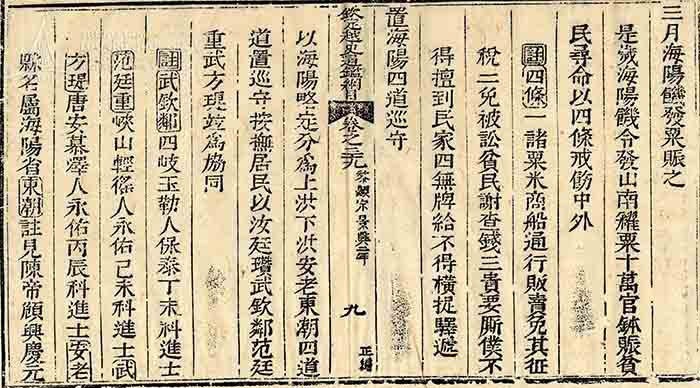 三月海陽饑發粟賑之
是歲海陽饑令發山南糴粟十萬官鉢賑貧
民尋命以四條戒飭中外
註四條一諸粟米商船通行販賣免其征
稅二免被訟貧民謝查錢三貴要厮僕不
得擅到民家四無牌給不得橫捉驛遞
置海陽四道巡守
欽定越史通鑑綱目 卷之三九 黎顯宗景興二年 九 正編
以海陽略定分爲上洪下洪安老東潮四道
道置巡守按撫居民以汝廷瓚武欽鄰范廷
重武方琨竝爲協同
註武欽鄰四岐玉勒人保泰丁未科進士
范廷重峽山輕徭人永佑己未科進士武
方琨唐安慕澤人永佑丙辰科進士安老
縣名屬海陽省東潮註見陳帝顒興慶元